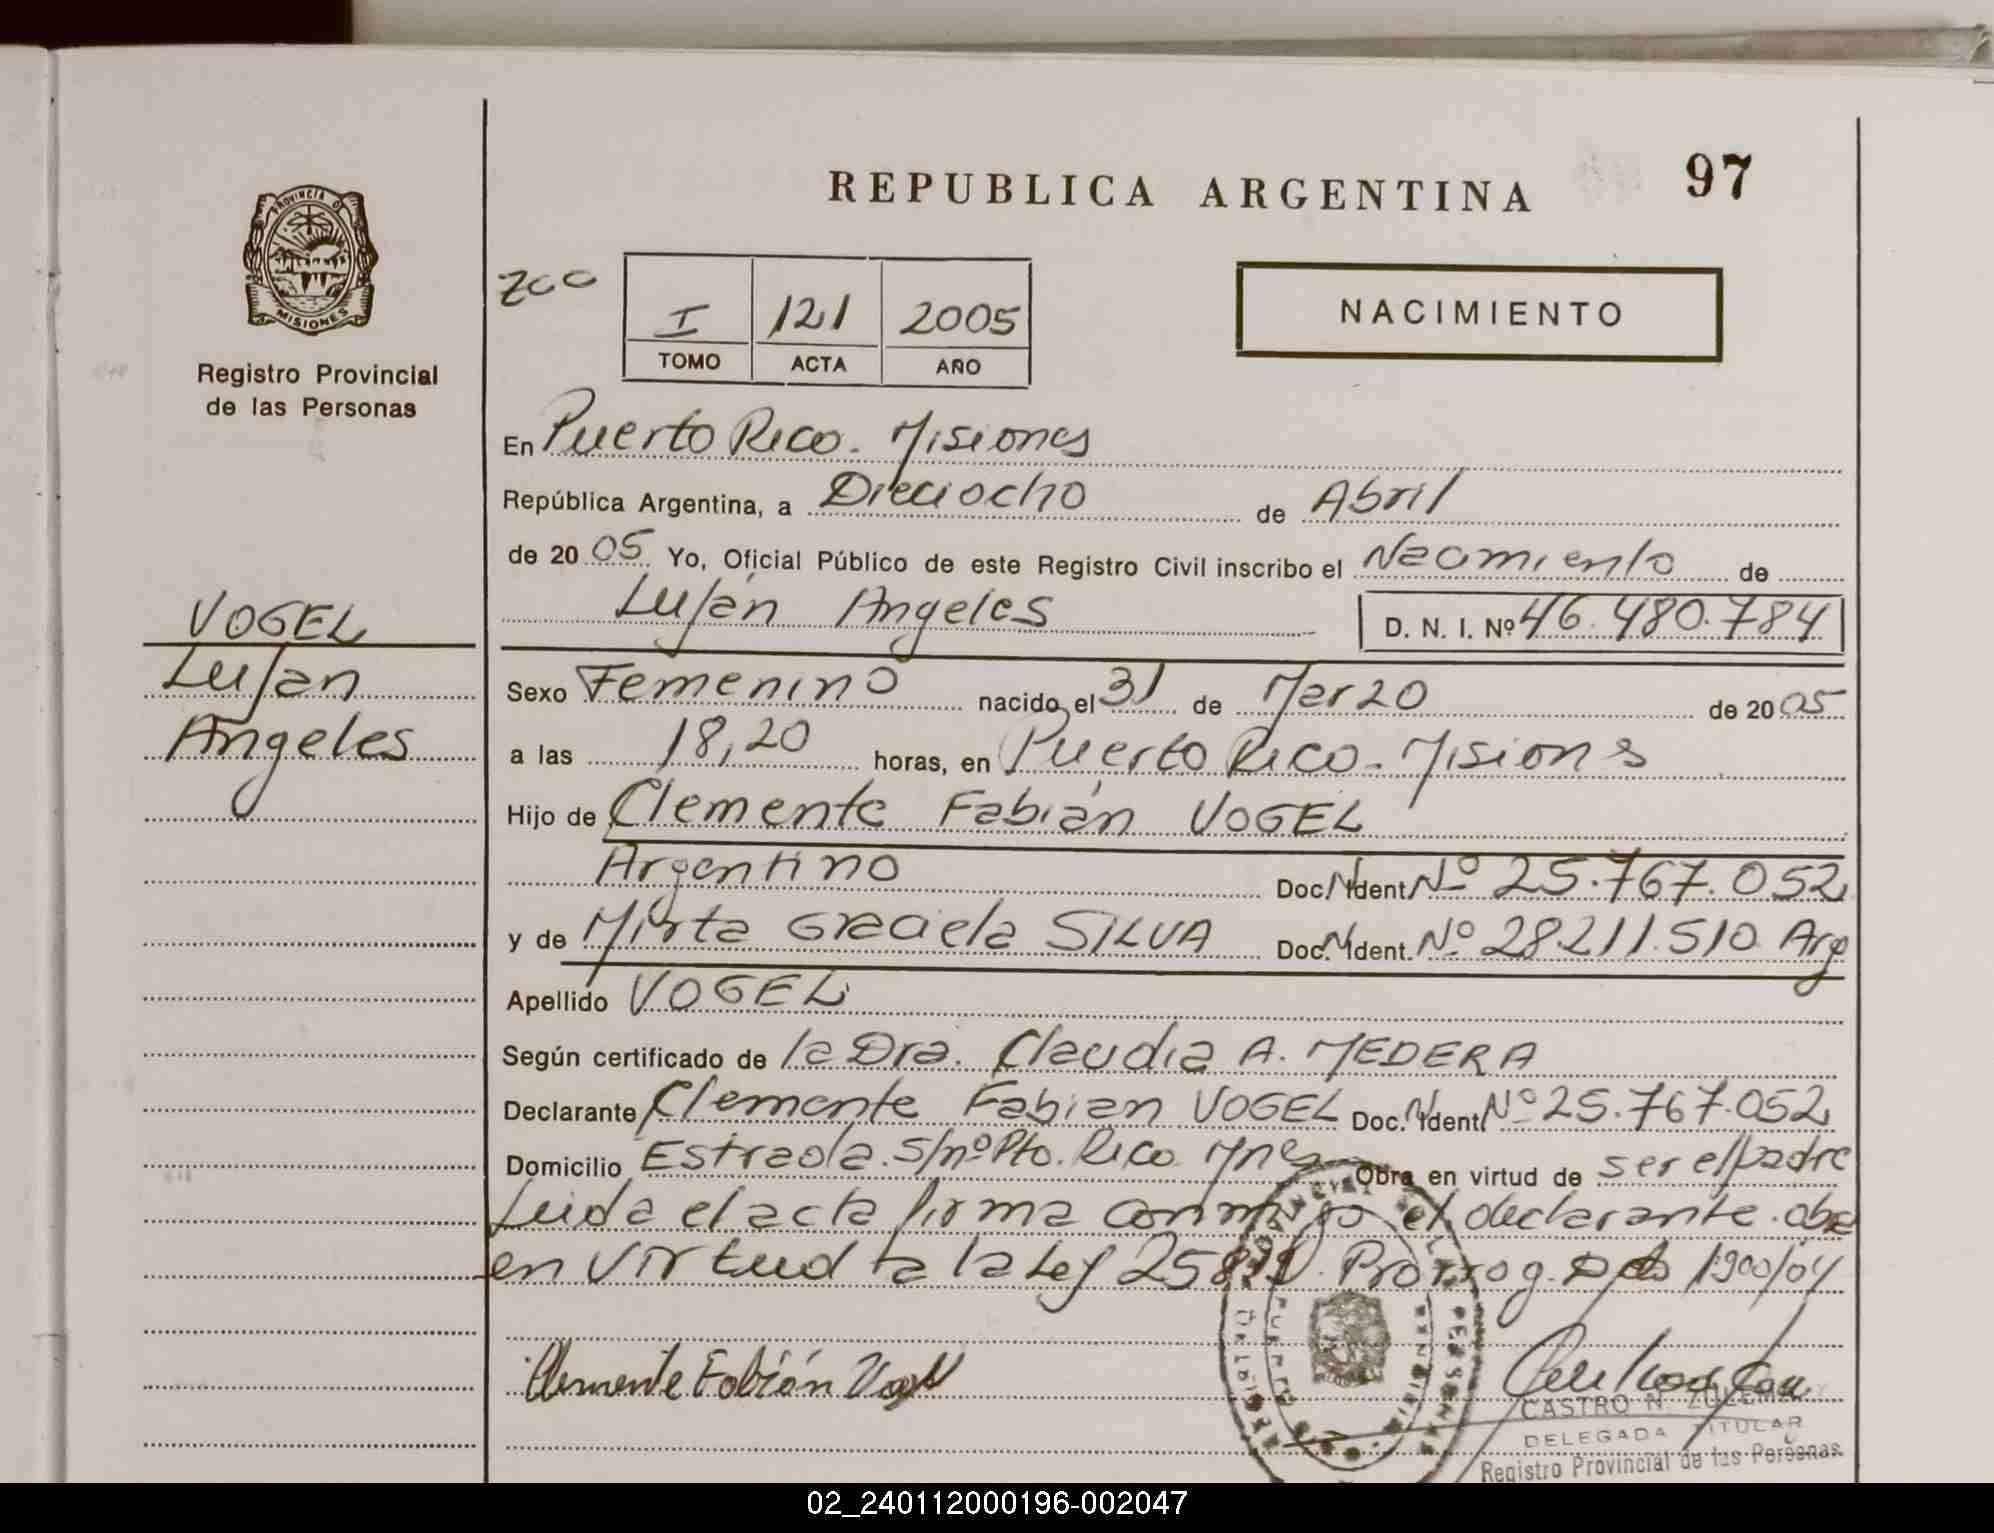 REPUBLICA ARGENTINA 97
PROVINCIA D
MISIONES
Registro Provincial
de las Personas
200
I 121 2005
TOMO ACTA AÑO
NACIMIENTO
En Puerto Rico. Misiones
República Argentina, a Dieciocho de Abril
de 2005 Yo, Oficial Público de este Registro Civil inscribo el Nacimiento de
Luján Angeles D. N. I. Nº 46.480.784
VOGEL
Luján
Angeles
Sexo Femenino nacido el 31 de Marzo de 2005
a las 18,20 horas, en Puerto Rico. Misiones
Hijo de Clemente Fabián VOGEL
Argentino Doc. N. Ident. Nº 25.767.052
y de Mirta Graciela SILVA Doc. N. Ident. Nº 28.211.510 Arg
Apellido VOGEL
Según certificado de la Dra. Claudia A. MEDERA
Declarante Clemente Fabian VOGEL Doc. N. Ident. Nº 25.767.052
Domicilio Estrada. S/nº Pto. Rico Mnes Obra en virtud de ser el padre
Leida el acta firma conmigo el declarante. obra
en virtud a la Ley Prorrog. Dcto 1900/04
Clemente Fabián Vogel
CASTRO N. ZULEMA
DELEGADA TITULAR
Registro Provincial de las Personas
02_240112000196-002047